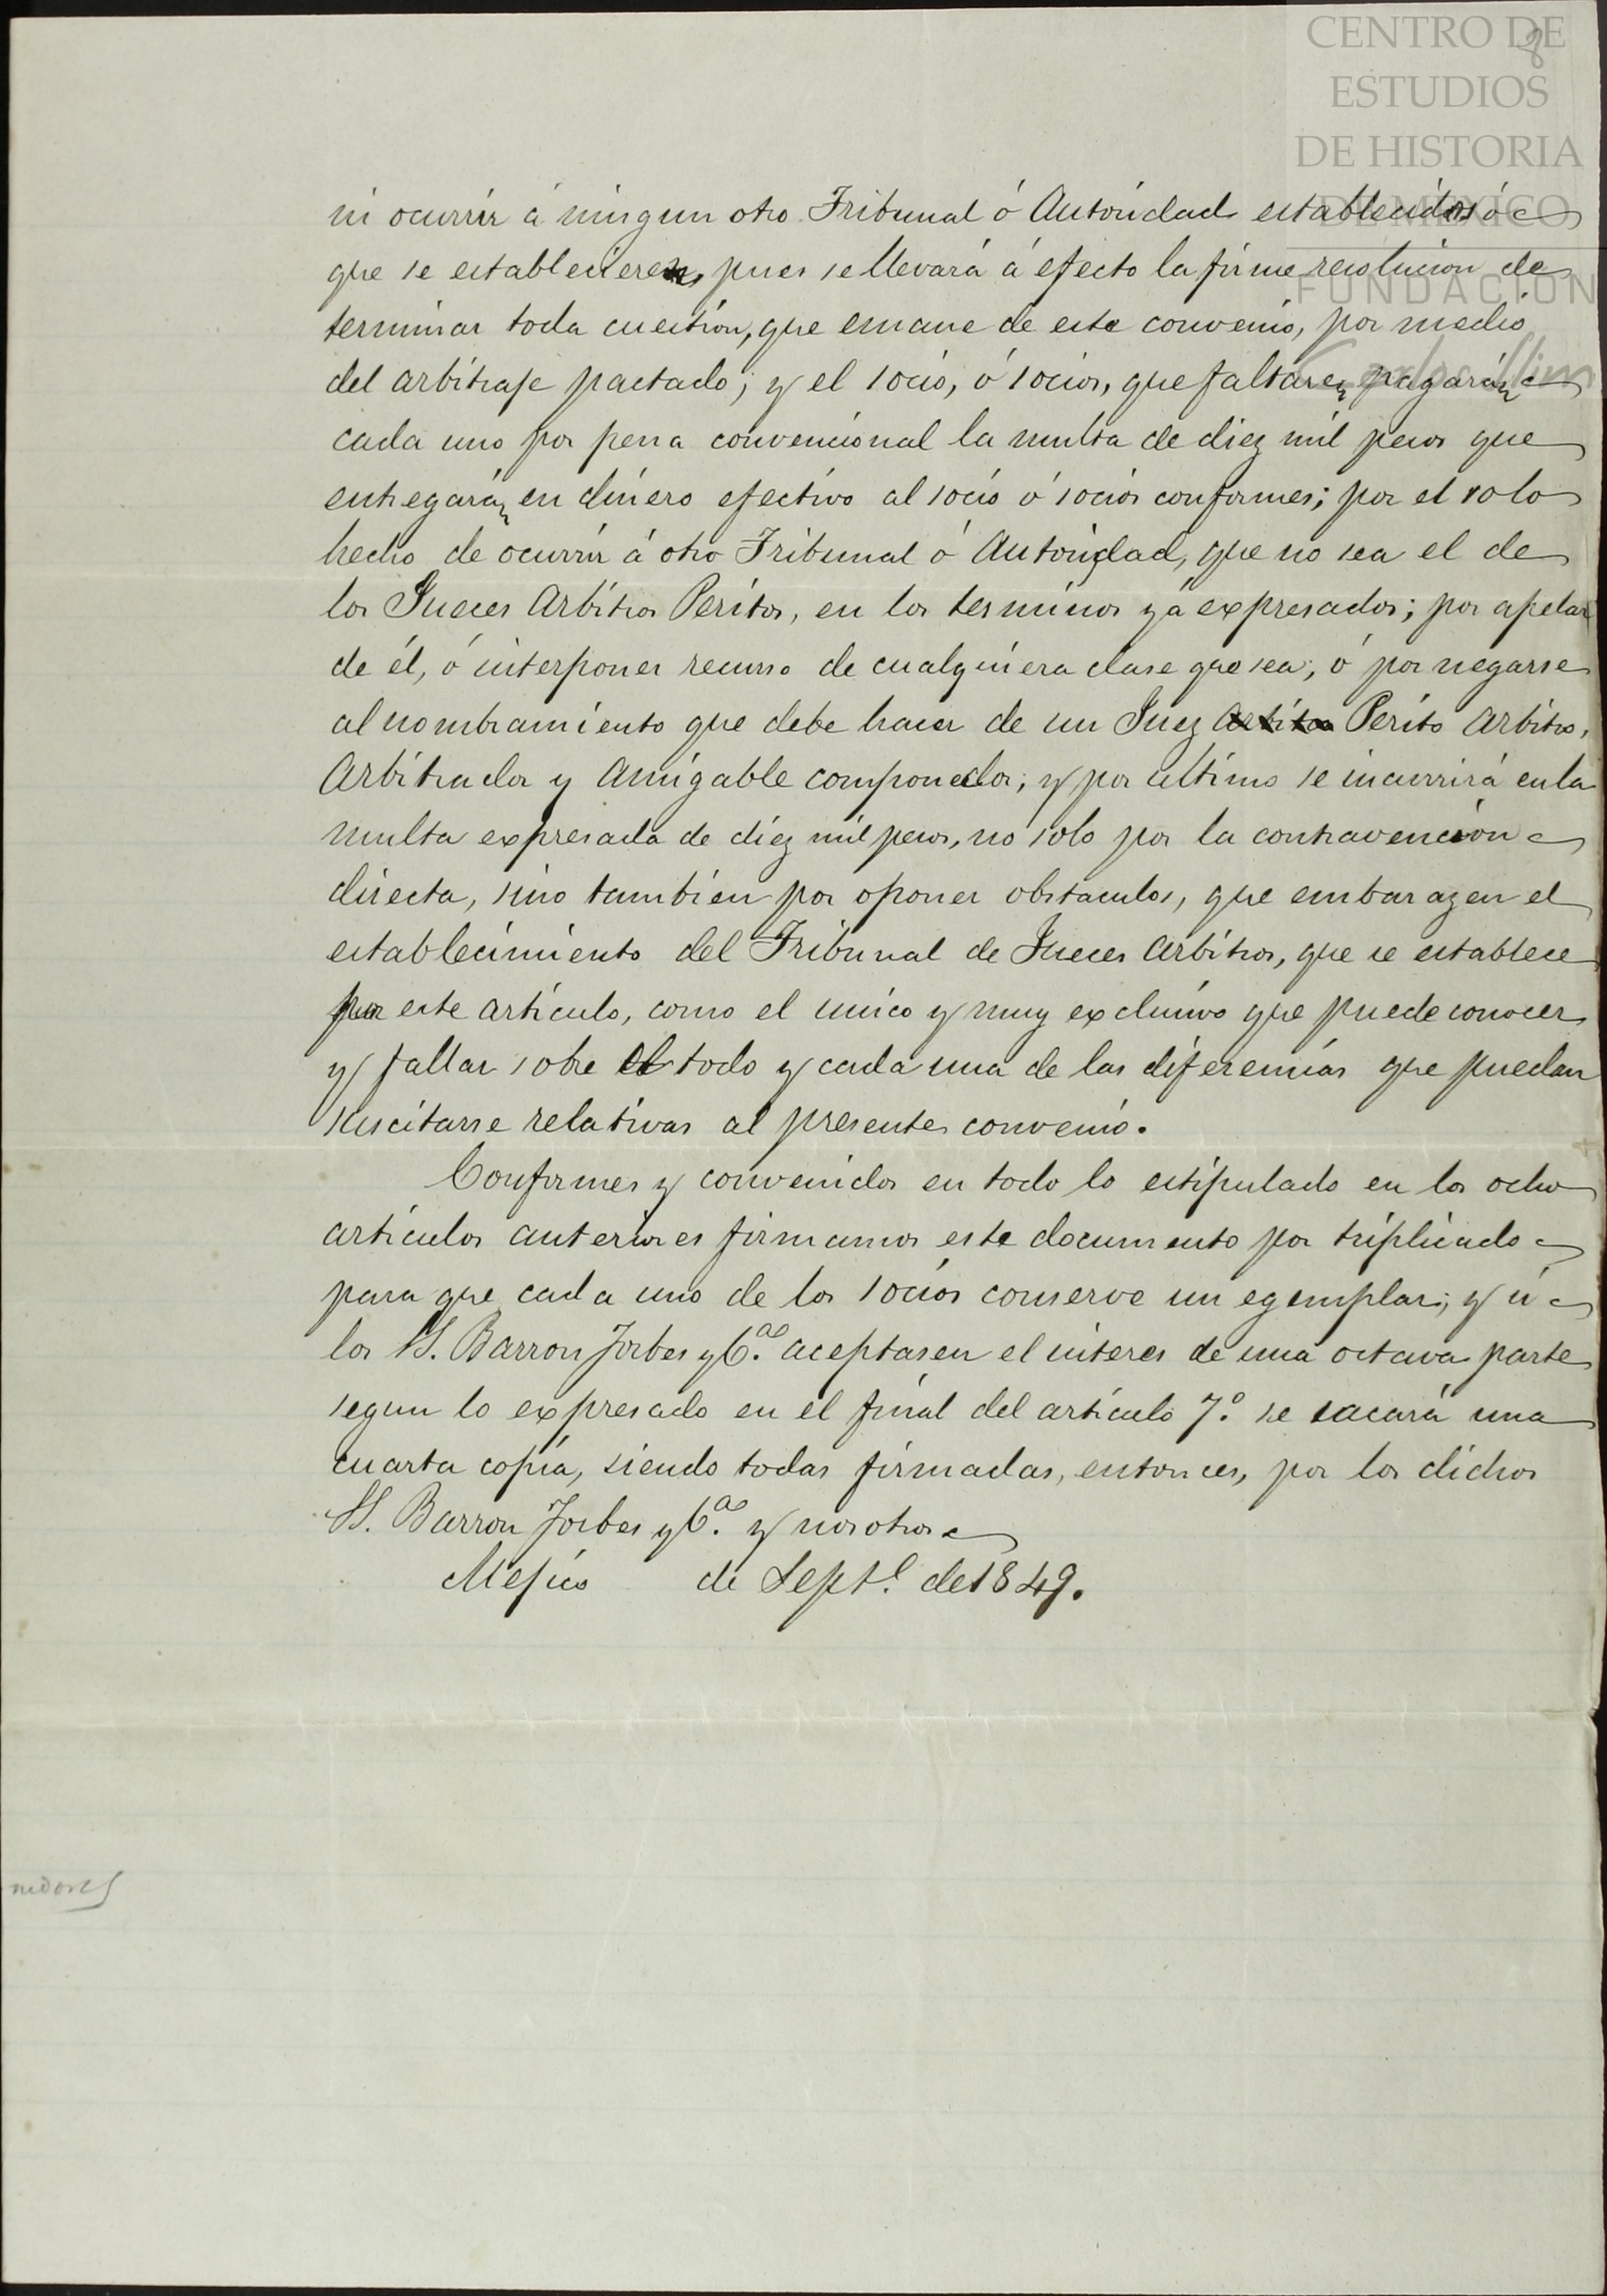 CENTRO DE
ESTUDIOS
DE HISTORIA
DE MÉXICO
FUNDACIÓN
Carlos Slim
8
ni ocurrir á ningun otro Tribunal ó Autoridad establecidos ó
que se establecieren, pues se llevará á efecto la firme resolucion de
terminar toda cuestion, que emane de este convenio, por medio
del arbitraje pactado; y el socio, ó socios, que faltaren pagarán
cada uno por pena convencional la multa de diez mil pesos que
entregarán en dinero efectivo al socio ó socios conformes; por el solo
hecho de ocurrir á otro Tribunal ó Autoridad, que no sea el de
los Jueces Arbitros Peritos, en los terminos yá expresados; por apelar
de él, ó interponer recurso de cualquiera clase que sea; ó por negarse
al nombramiento que debe hacer de un Juez Arbitro Perito Arbitro,
Arbitrador y Amigable componedor; y por ultimo se incurrirá en la
multa expresada de diez mil pesos, no solo por la contravencion
directa, sino tambien por oponer obstaculos, que embarazen el
establecimiento del Tribunal de Jueces Arbitros, que se establece
por este artículo, como el unico y muy exclusivo que puede conocer
y fallar sobre el todo y cada una de las diferencias que puedan
suscitarse relativas al presente convenio.
Conformes y convenidos en todo lo estipulado en los ocho
artículos anteriores firmamos este documento por triplicado
para que cada uno de los socios conserve un egemplar; y si
los SS. Barron Forbes y Cª. aceptasen el interes de una octava parte
segun lo expresado en el final del artículo 7.º se sacará una
cuarta copia, siendo todas firmadas, entonces, por los dichos
SS. Barron Forbes y Cª. y nosotros
Mejico de Septe. de 1849.
nedores